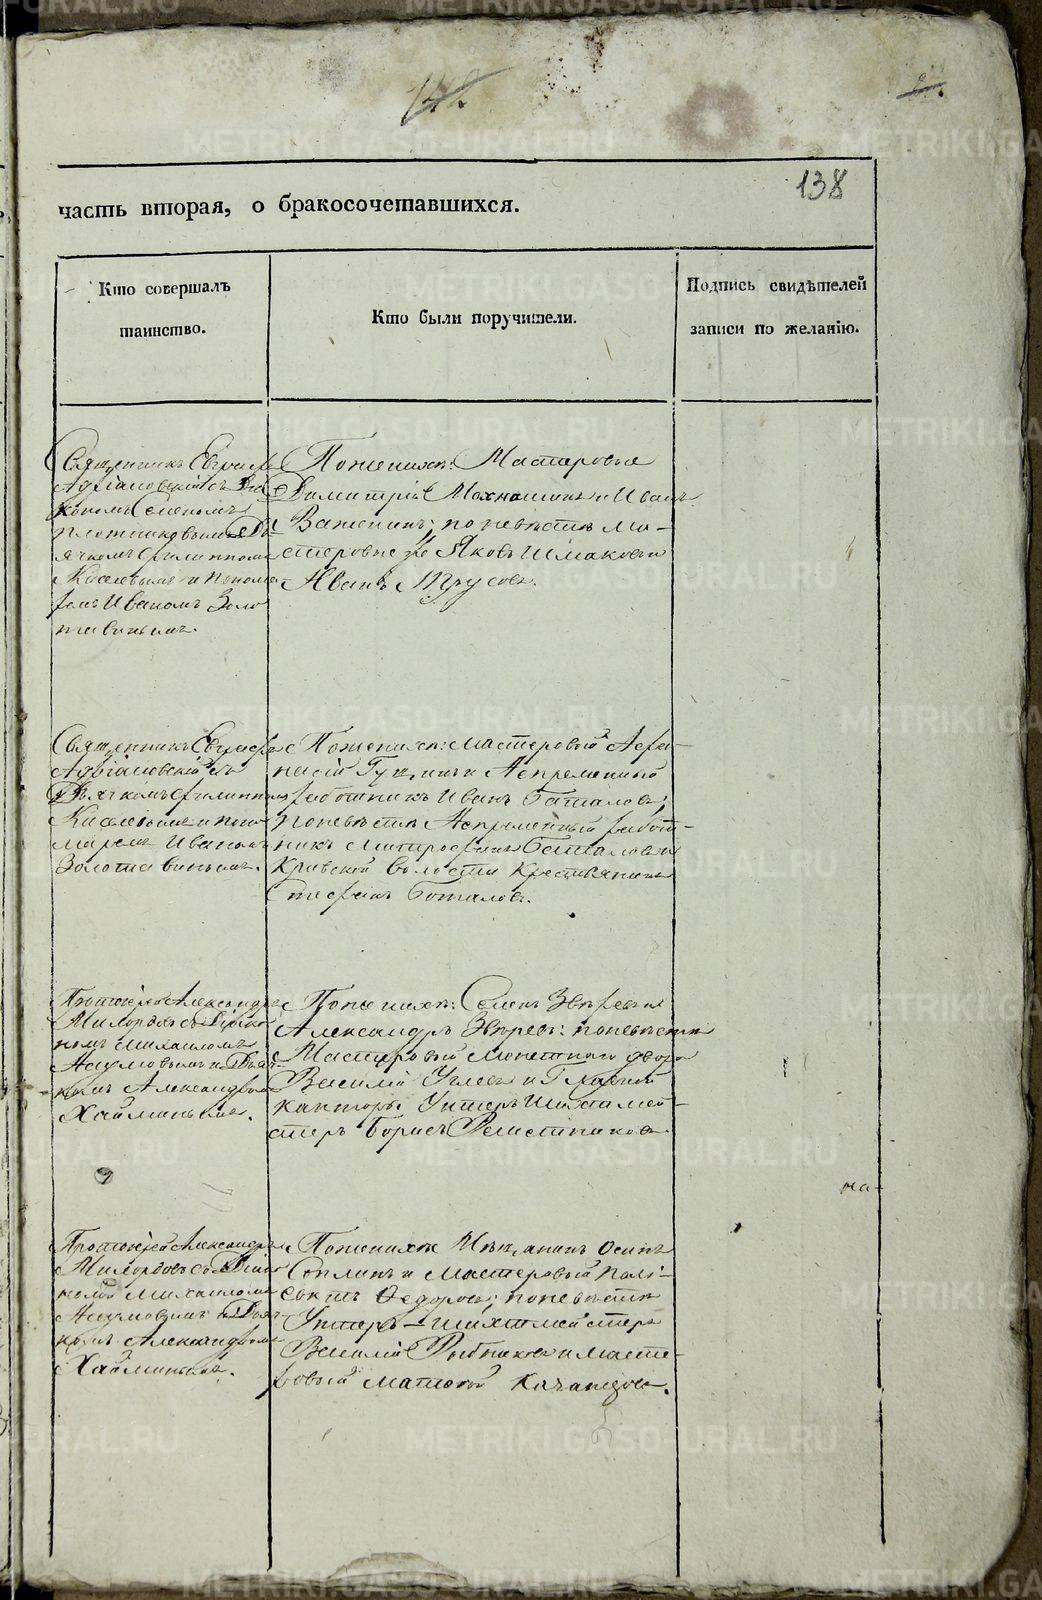 138
часть вторая, о бракосочетавшихся.
Кто совершалъ
таинство.
Кто были поручители.
Подпись свидѣтелей
записи по желанію.
Священникъ Евграфъ
Адріановскій съ Діа
кономъ Симеономъ
Плотниковымъ Дь-
ячкомъ Филиппомъ
Киселевымъ и понома-
ремъ Иваномъ Золо
тавинымъ.
По женихѣ: Мастеровые
Димитрій и Иванъ
Важенинъ; по невѣстѣ Ма-
стеровые же Яковъ Шмаковъ и
Иванъ Трусовъ.
Священникъ Евграфъ
Адріановскій съ
Дьячкомъ Филиппомъ
Киселевымъ и поно-
маремъ Иваномъ
Золотавинымъ.
По женихѣ: мастеровый Афа-
насій и Непременный
работникъ Иванъ Баталовъ;
по невѣстѣ Непременный работ-
никъ Митрофанъ Баталовъ и
волости Крестьянинъ
Стефанъ Боталовъ.
Протоіерей Александръ
Милордовъ съ Діако
номъ Михаиломъ
Наумовымъ и Дьяч-
комъ Александромъ
Хайминымъ.
По женихѣ: Семенъ Звѣревъ и
Александръ Звѣревъ: по невѣстѣ
Мастеровый монетнаго двора
Василій Углевъ и Главной
канторы Унтеръ Шихтмей-
стеръ Борисъ Решетниковъ.
на-
Протоіерей Александръ
Милордовъ съ Діако
номъ Михаиломъ
Наумовымъ и Дьяч-
комъ Александромъ
Хайминымъ.
По женихѣ Мѣщанинъ Осипъ
и Мастеровый Поли-
ектъ Федоровъ; по невѣстѣ
Унтеръ-шихтмейстеръ
Василій Рыбниковъ и масте-
ровый Матвѣй